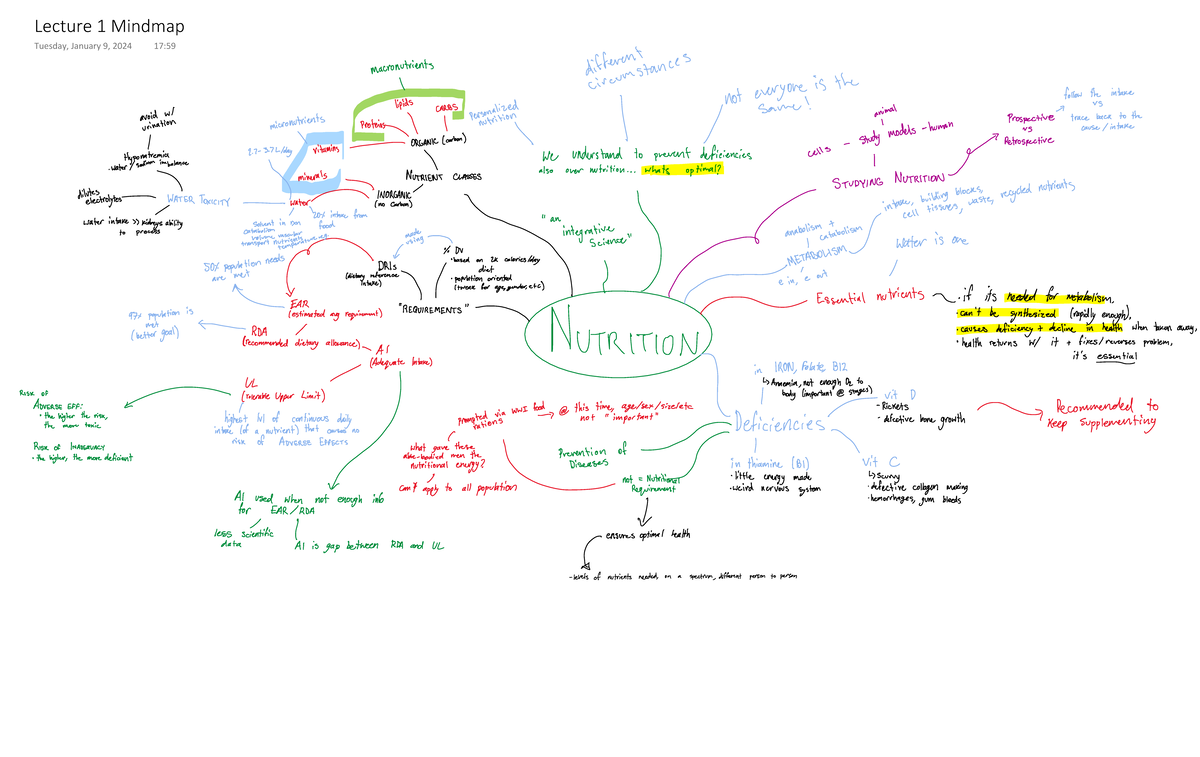 Lecture 1 Mindmap
Tuesday, January 9, 2024 17:59
NUTRITION
macronutrients
lipids
CARBS
Proteins
ORGANIC (carbon)
micronutrients
2.7-3.7L/day
vitamins
minerals
water
INORGANIC
(no carbon)
NUTRIENT CLASSES
avoid w/
urination
Hyponatremia
· water/sodium imbalance
dilutes
electrolytes
WATER TOXICITY
water intake >> kidneys ability
to process
Solvent in rxn
catabolism
transport nutrients
20% intake from
food
"REQUIREMENTS"
made
using
% DV
· based on 2k calories/day
diet
· population oriented
(tweak for age, gender, etc)
DRIs
(dietary reference
intake)
50% population needs
are met
EAR
(estimated avg requirement)
97% population is
met
(better goal)
RDA
(recommended dietary allowance)
AI
(Adequate Intake)
UL
(Tolerable Upper Limit)
highest NI of continuous daily
intake (of a nutrient) that causes no
risk of ADVERSE EFFECTS
RISK OF
ADVERSE EFF:
· the higher the risk,
the more toxic
RISK OF INADEQUACY
· the higher, the more deficient
AI used when not enough info
for EAR/RDA
less scientific
data
AI is gap between RDA and UL
"an
integrative
Science"
Personalized
nutrition
different
circumstances
not everyone is the
same!
We understand to prevent deficiencies
also over nutrition... whats optimal?
STUDYING NUTRITION
animal
cells - study models - human
Prospective
vs
Retrospective
follow the intake
vs
trace back to the
cause/intake
anabolism +
catabolism
METABOLISM
e in, e out
intake, building blocks,
cell tissues, waste, recycled nutrients
Water is one
Essential nutrients
· if its needed for metabolism,
· can't be synthesized (rapidly enough),
· causes deficiency + decline in health when taken away,
· health returns w/ it + fixes/reverses problem,
it's essential
Deficiencies
in IRON, Folate B12
↳ Anemia, not enough O2 to
body (important @ stages)
vit D
- Rickets
- defective bone growth
Recommended to
Keep Supplementing
in thiamine (B1)
· little energy made
· weird nervous system
Vit C
↳ Scurvy
· defective collagen making
· hemorrhages, gum bleeds
Prevention of
Diseases
not = Nutritional
Requirement
prompted via WWI food
rations
@ this time, age/sex/size/etc
not "important"
what gave these
able-bodied men the
nutritional energy?
can't apply to all population
ensures optimal health
- levels of nutrients needed, on a spectrum, different person to person